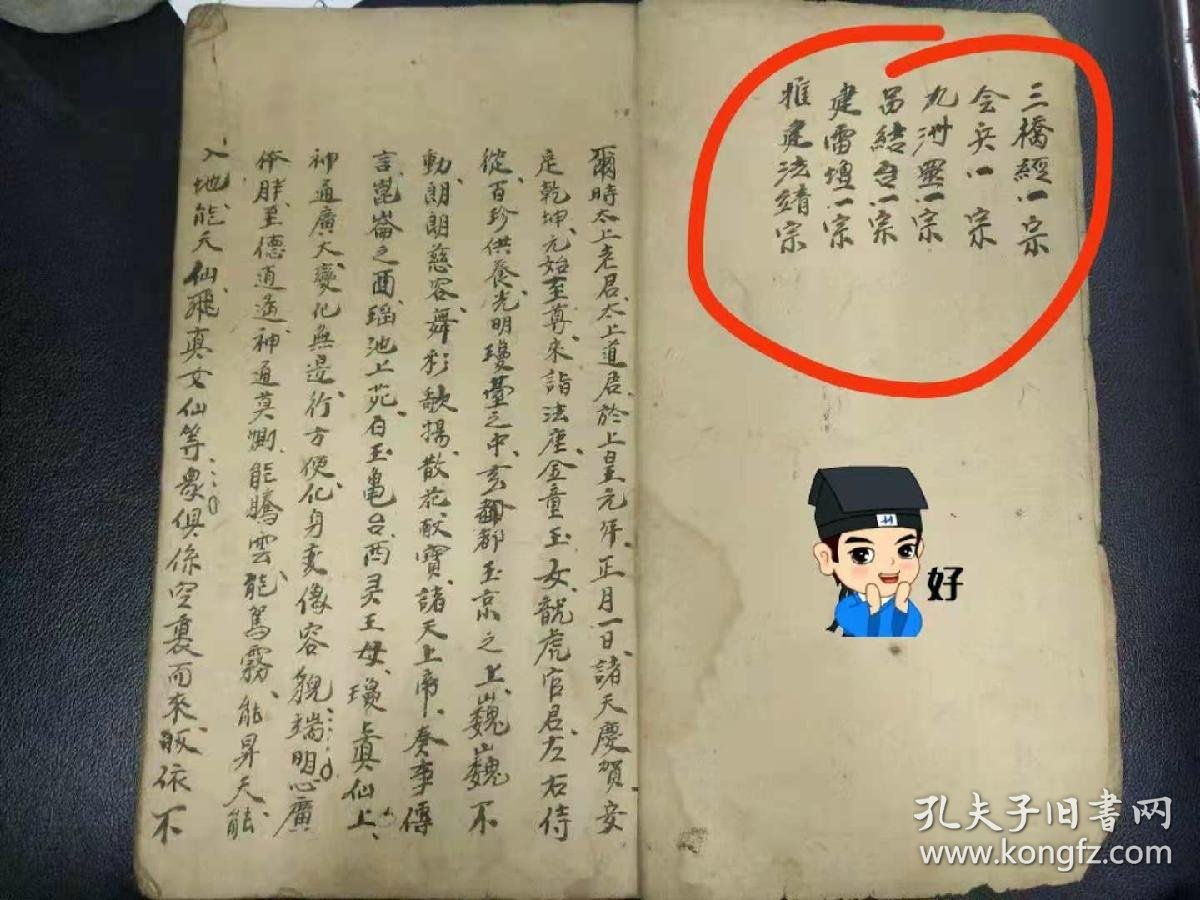 三橋經一宗
会兵一宗
九洲罡一宗
吕結台一宗
建雷壇一宗
推建法靖宗
爾時太上老君太上道居於上皇元年正月一日諸天慶賀安
定乾坤元始至尊來詣法座金童玉女龍虎官君左右侍
從百珍供養光明瓊臺之中玄都玉京之上巍巍不
動朗朗慈容舞彩歌揚散花献寶諸天上帝奏事傳
言崑崙之西瑶池上苑白玉亀台西灵王母瓊真仙上
神通廣大變化無邊行方便化身变像容貌端明心廣
体胖至德逍遥神通莫測能騰雲能駕霧能昇天能
入地能天仙飛真女仙等衆俱係空裏而來皈依不
好
孔夫子旧書网
www.kongfz.com